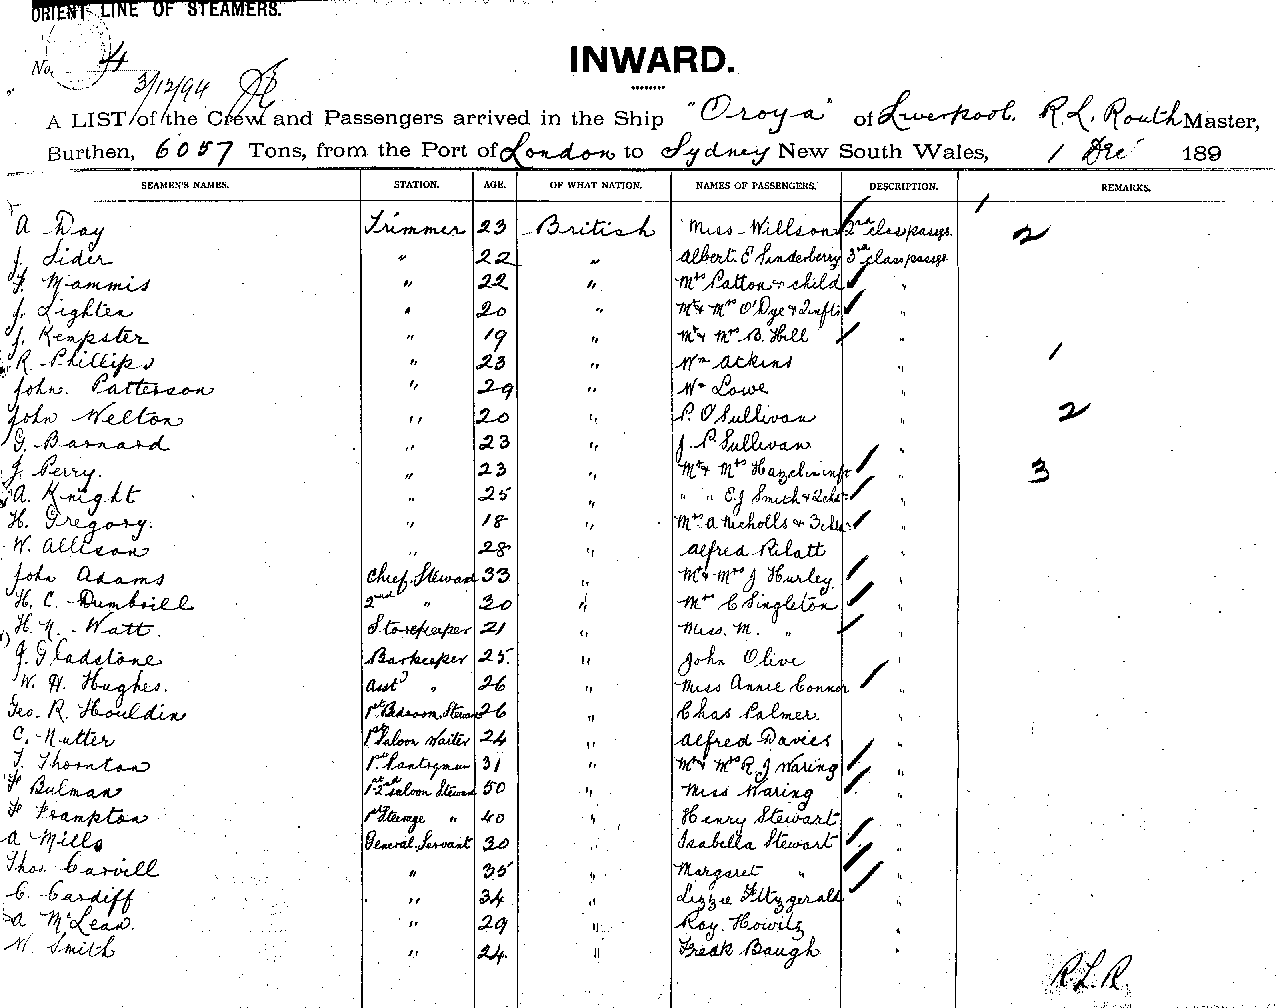 ORIENT LINE OF STEAMERS.
No. 4
3/12/94
INWARD.
A LIST of the Crew and Passengers arrived in the Ship "Oroya" of Liverpool. R.L. Routh Master,
Burthen, 6057 Tons, from the Port of London to Sydney New South Wales, 1 Dec 189
SEAMEN'S NAMES. STATION. AGE. OF WHAT NATION. NAMES OF PASSENGERS. DESCRIPTION. REMARKS.
A Day Trimmer 23 British Miss Willson 2nd class passgs. 1 2
J. Lider " 22 " Albert E Sunderberry 3rd class passgs
F Mammis " 22 " Mrs Patton & child "
J. Lighten " 20 " Mr & Mrs O'Dye & 2 infts "
J. Kempster " 19 " Mr & Mrs B. Hill "
R Phillips " 23 " Wm Ackins " 1
John. Patterson " 29 " Wm Lowe "
John Welton " 20 " P. O'Sullivan " 2
G. Barnard " 23 " J. P. Sullivan "
J. Perry. " 23 " Mr & Mrs Hazel inft " 3
A. Knight " 25 " " " E.J Smith & 2 chd "
H. Gregory. " 18 " Mrs A Nicholls & 3 chd "
W. Allison " 28 " Alfred Rilatt "
John Adams Chief Steward 33 " Mr & Mrs J Hurley "
H. C. Dumbrill 2nd " 30 " Mrs C Singleton "
H. N. Watt. Storekeeper 21 " Miss. M. " "
J. Gladstone Barkeeper 25. " John Olive "
W. H. Hughes. Asst " 26 " Miss Annie Connor "
Geo. R. Houldin 1st Bedroom Steward 26 " Chas Palmer. "
C. Nutter 1st Saloon Waiter 24 " Alfred Davies "
T. Thornton 1st Pantryman 31 " Mr & Mrs R J Waring "
F Bulman 2nd Saloon Steward 50 " Miss Waring "
F Frampton 1st Steerage " 40 " Henry Stewart "
A Mills General Servant 30 " Isabella Stewart "
Thos. Carvill " 35 " Margaret " "
C. Cardiff " 34 " Lizzie Fitzgerald "
A McLean. " 29 " Ray. Howitz "
W. Smith " 24. " Freak Baugh "
R.L.R.